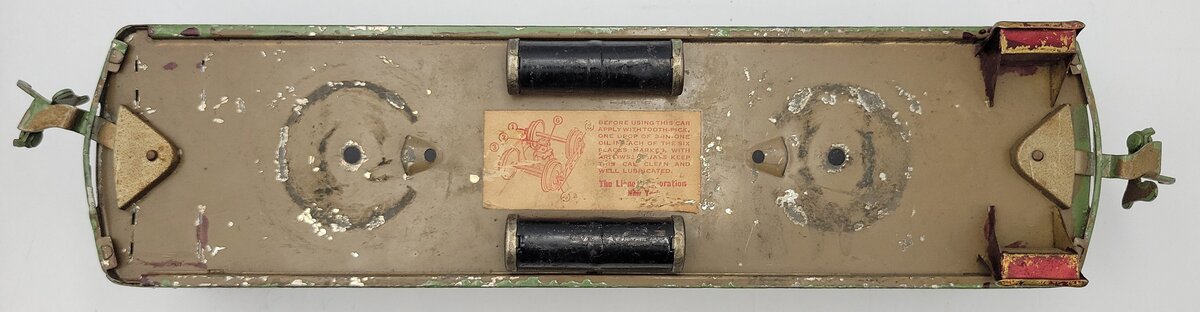 BEFORE USING THIS CAR
APPLY WITH TOOTH-PICK,
ONE DROP OF 3-IN-ONE
OIL IN EACH OF THE SIX
PLACES MARKED WITH
ARROWS. ALWAYS KEEP
THIS CAR CLEAN AND
WELL LUBRICATED.
The Lionel Corporation
New Y